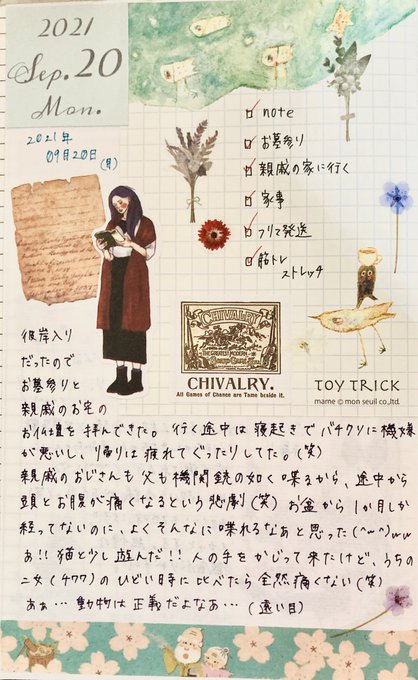 2021
Sep.20
Mon.
2021年
09月20日(月)
note
お墓参り
親戚の家に行く
家事
フリマ発送
筋トレ
ストレッチ
CHIVALRY
THE GREATEST MODERN
CHIVALRY.
All Games of Chance are Tame beside it.
TOY TRICK
mame © mon seuil co.,ltd.
彼岸入り
だったので
お墓参りと
親戚のお宅の
お仏壇を拝んできた。行く途中は寝起きでバチクソに機嫌
が悪いし、帰りは疲れてぐったりしてた。(笑)
親戚のおじさんも父も機関銃の如く喋るから、途中から
頭とお腹が痛くなるという悲劇(笑)お盆から1か月しか
経ってないのに、よくそんなに喋れるなあと思った(^ω^)ww
あ!!猫と少し遊んだ!!人の手をかじって来たけど、うちの
二女(チワワ)のひどい時に比べたら全然痛くない(笑)
あぁ…動物は正義だよなあ…(遠い目)